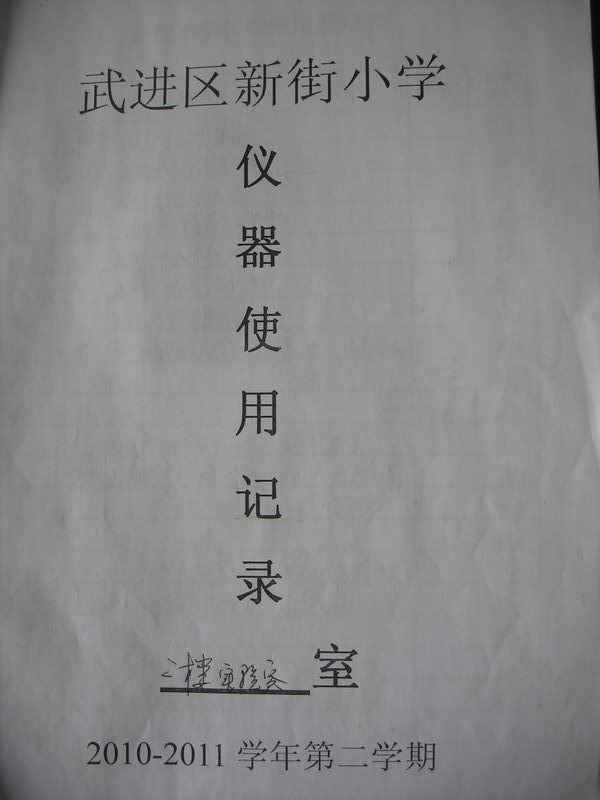 武进区新街小学
仪器使用记录
二楼实验室 室
2010-2011 学年第二学期